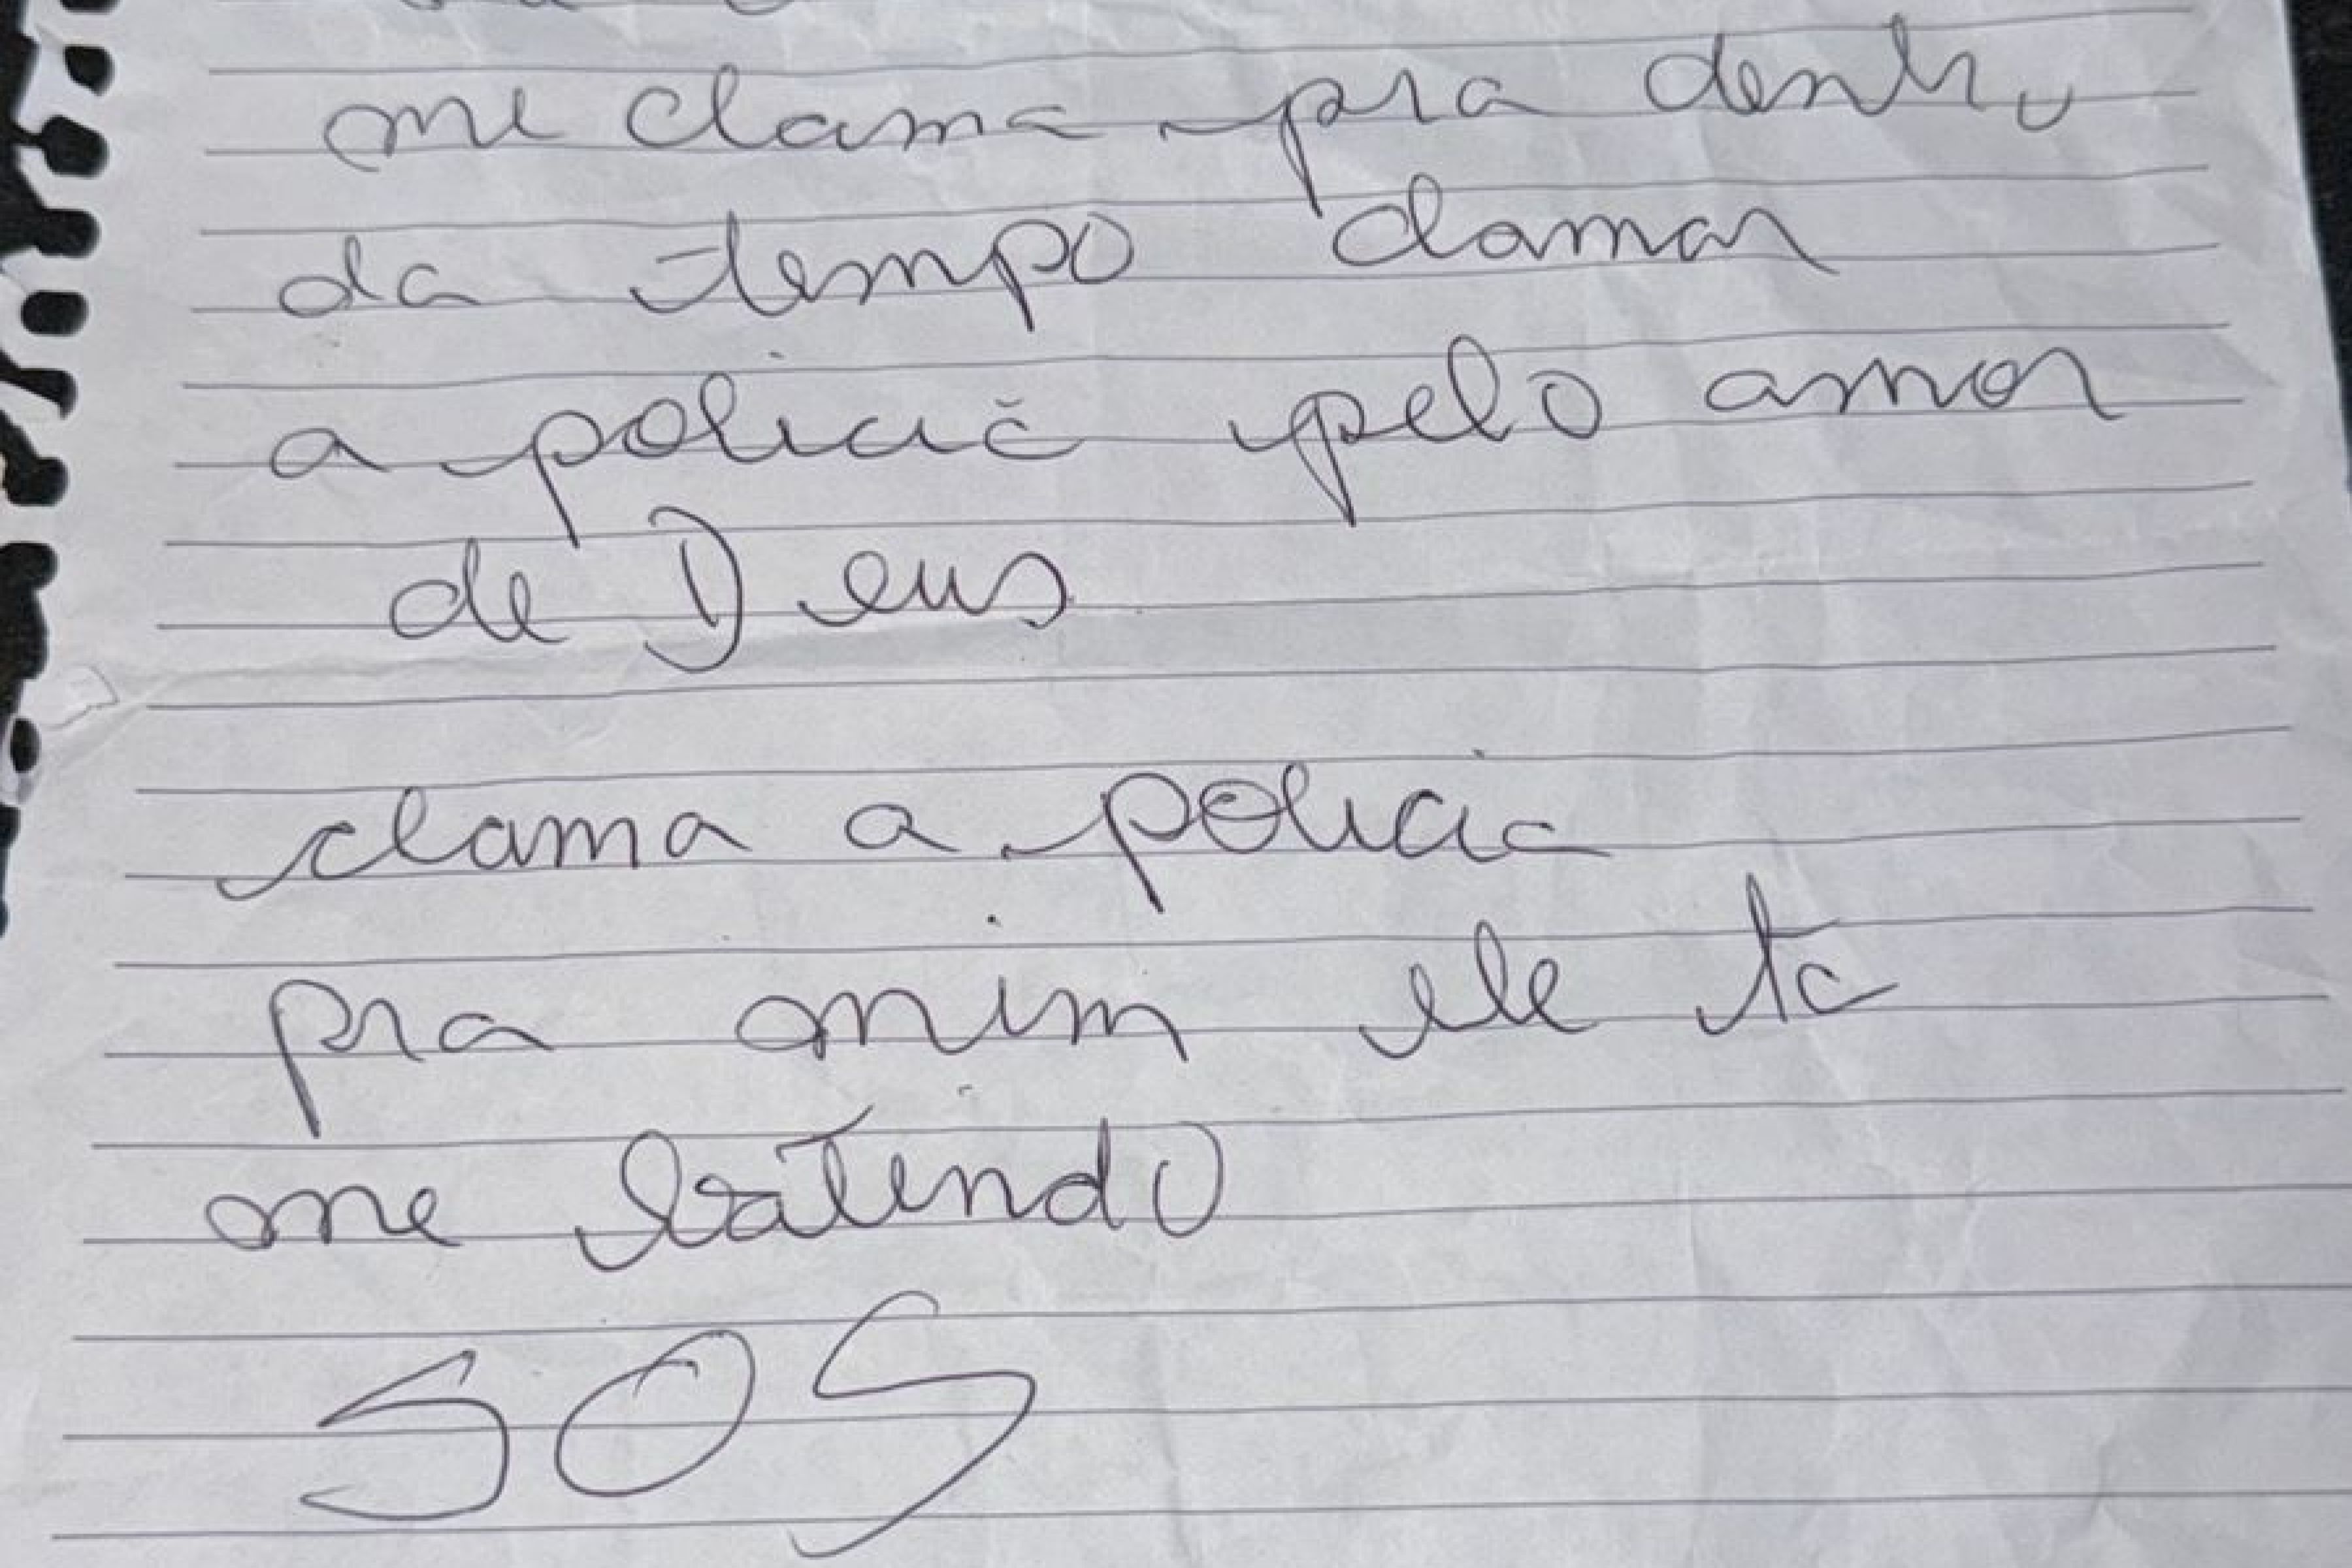 me clama pra dentro
da tempo clamar
a policia pelo amor
de Deus
clama a policia
pra mim ele ta
me batendo
SOS